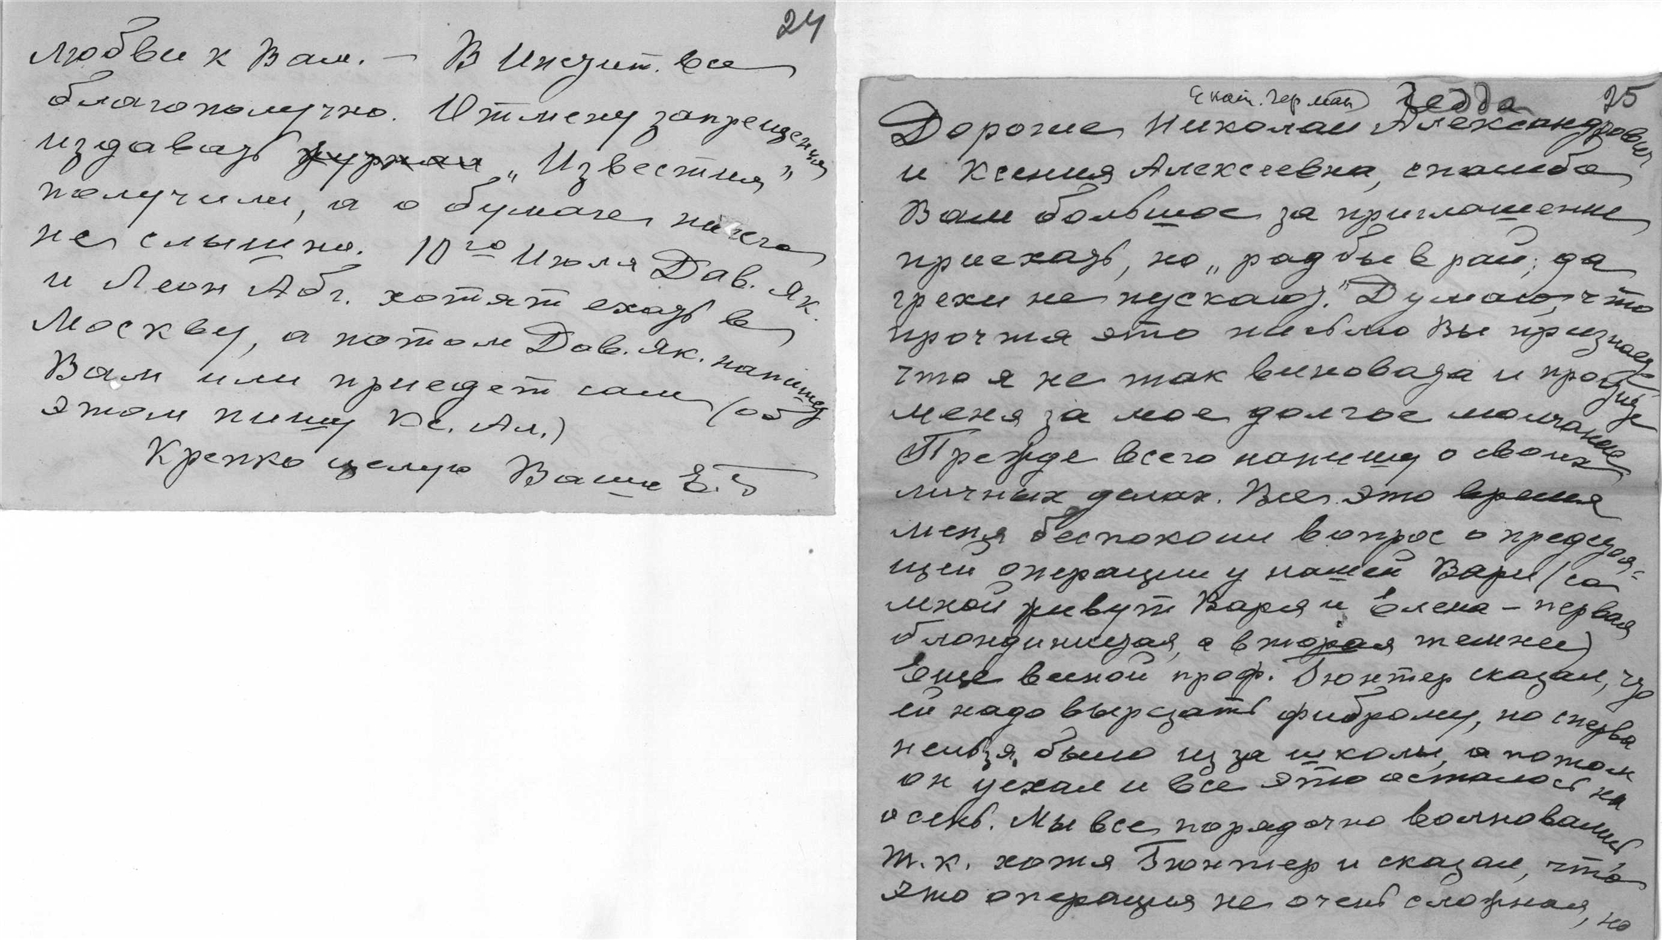 24
любви к Вам. — В Инстит. все
благополучно. Отмену запрещения
издавать журнал „Известия"
получили, а о бумаге ничего
не слышно. 10го Июля Дав. Як.
и Леон Абг. хотят ехать в
Москву, а потом Дав. Як. напишет
Вам или приедет сам (об
этом пишу Кс. Ал.)
Крепко целую Ваша Е. Г
Екат. Герман Гедда 25
Дорогие Николай Александрович
и Ксения Алексеевна, спасибо
Вам большое за приглашение
приехать, но „рад бы в рай, да
грехи не пускают." Думаю, что
прочтя это письмо Вы признаете
что я не так виновата и простите
меня за мое долгое молчание
Прежде всего напишу о своих
личных делах. Все это время
меня беспокоил вопрос о предстоя-
щей операции у нашей Вари (со
мной живут Варя и Елена — первая
блондинистая, а вторая темнее)
Еще весной проф. Гюнтер сказал, что
ей надо вырезать фиброму, но сперва
нельзя было из за школы, а потом
он уехал и все это осталось на
осень. Мы все порядочно волновались
т.к. хотя Гюнтер и сказал, что
это операция не очень сложная, но